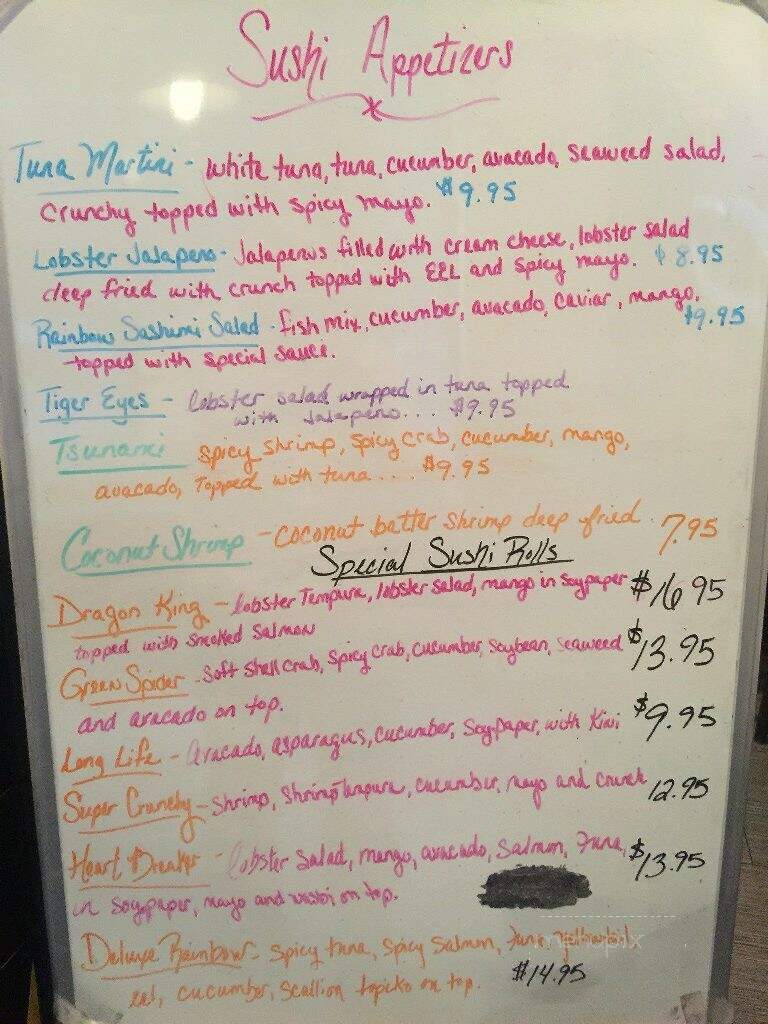 Sushi Appetizers
Tuna Martini - white tuna, tuna, cucumber, avacado, seaweed salad,
crunchy topped with spicy mayo. $9.95
Lobster Jalapeno - Jalapenos filled with cream cheese, lobster salad
deep fried with crunch topped with EEL and spicy mayo. $8.95
Rainbow Sashimi Salad - fish mix, cucumber, avacado, caviar, mango,
topped with special sauce. $9.95
Tiger Eyes - lobster salad wrapped in tuna topped
with Jalapeno... $9.95
Tsunami spicy shrimp, spicy crab, cucumber, mango,
avocado, Topped with tuna... $9.95
Coconut Shrimp - coconut batter shrimp deep fried. 7.95
Special Sushi Rolls
Dragon King - lobster Tempura, lobster salad, mango in soypaper $16.95
topped with smoked salmon
Green Spider - Soft shell crab, spicy crab, cucumber, soybean, seaweed $13.95
and avacado on top.
Long Life - Avacado, asparagus, cucumber, Soypaper, with Kiwi $9.95
Super Crunchy - Shrimp, Shrimp Tempura, cucumber, mayo and crunch 12.95
Heart Breaker - lobster Salad, mango, avocado, Salmon, Tuna, $13.95
in soypaper, mayo and on top.
Deluxe Rainbow - spicy tuna, spicy salmon, tuna, yellowtail
eel, cucumber, scallion topiko on top. $14.95